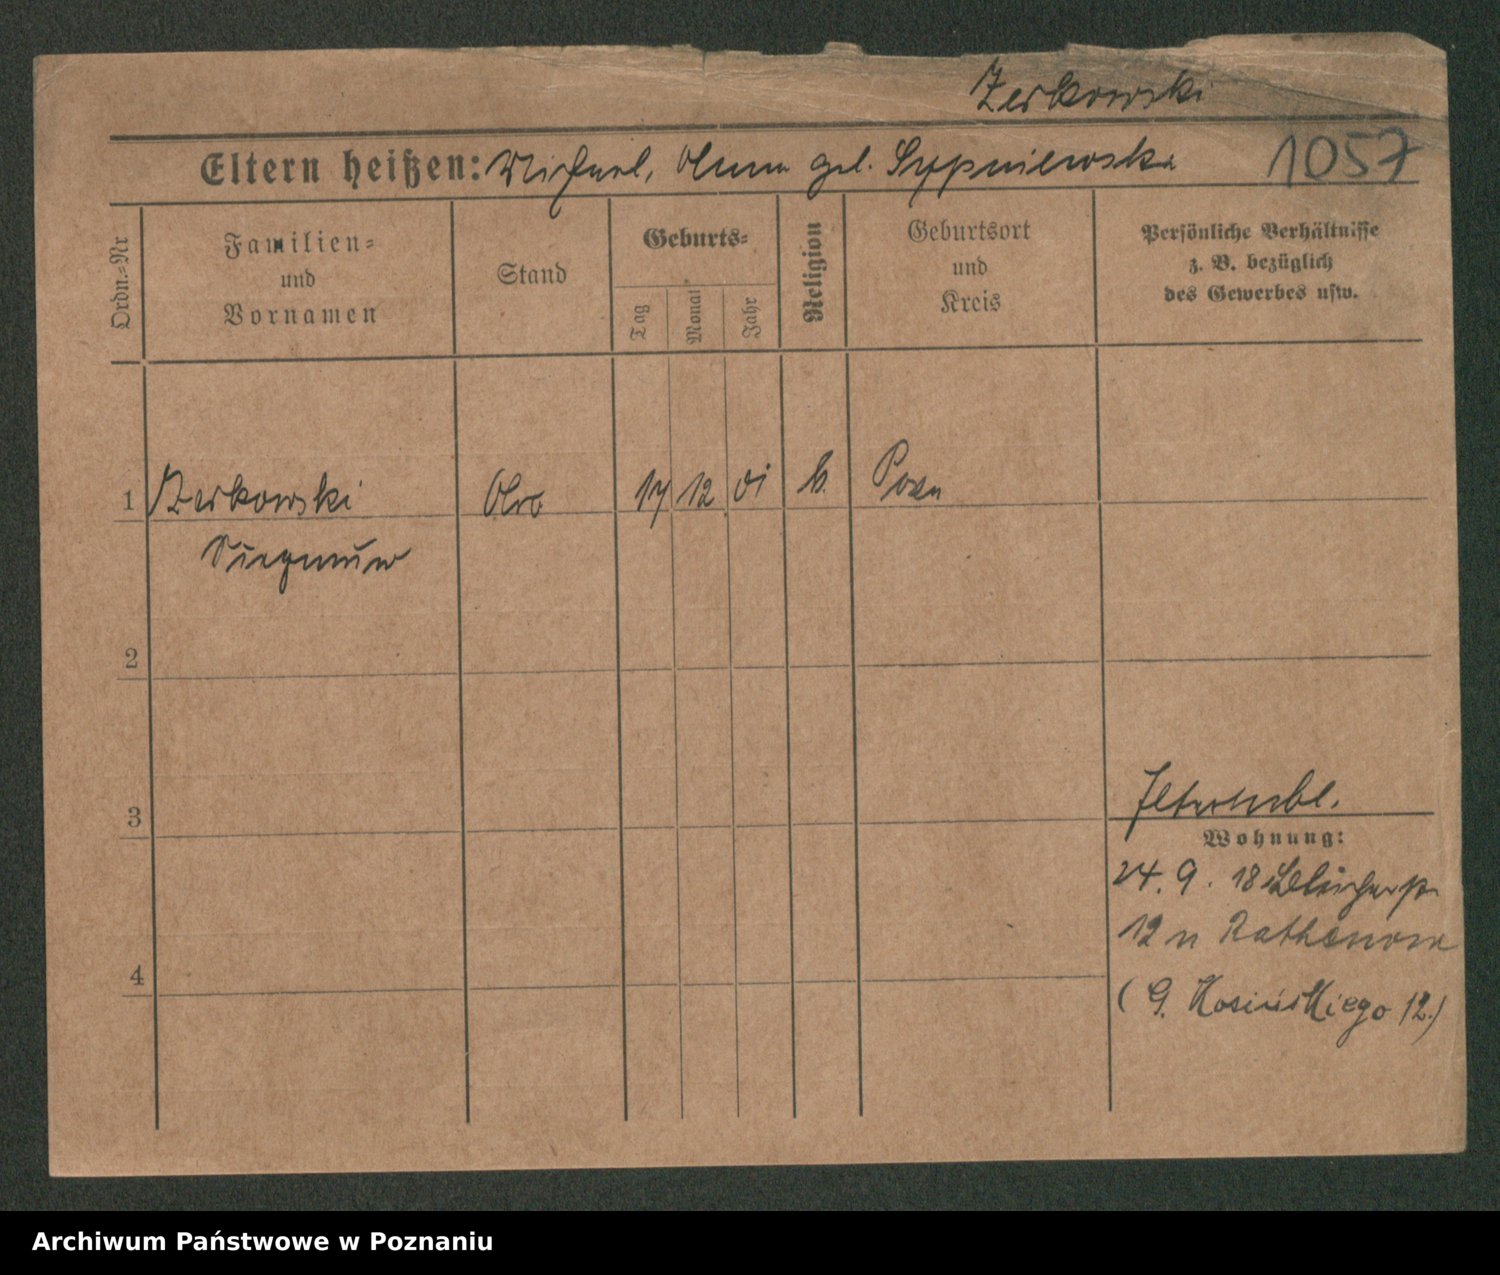 Zerkowski
Eltern heißen: Michael, Anna geb. Sypniewska
1057
Ordn.=Nr
Familien=
und
Vornamen
Stand
Geburts=
Tag
Monat
Jahr
Religion
Geburtsort
und
Kreis
Persönliche Verhältnisse
z. B. bezüglich
des Gewerbes usw.
1 Zerkowski 17 12 01 k. Posen
2
3
4
Wohnung:
24. 9. 18 Blücherstr
12 n Rathenow
(G. Kosińskiego 12.)
Archiwum Państwowe w Poznaniu